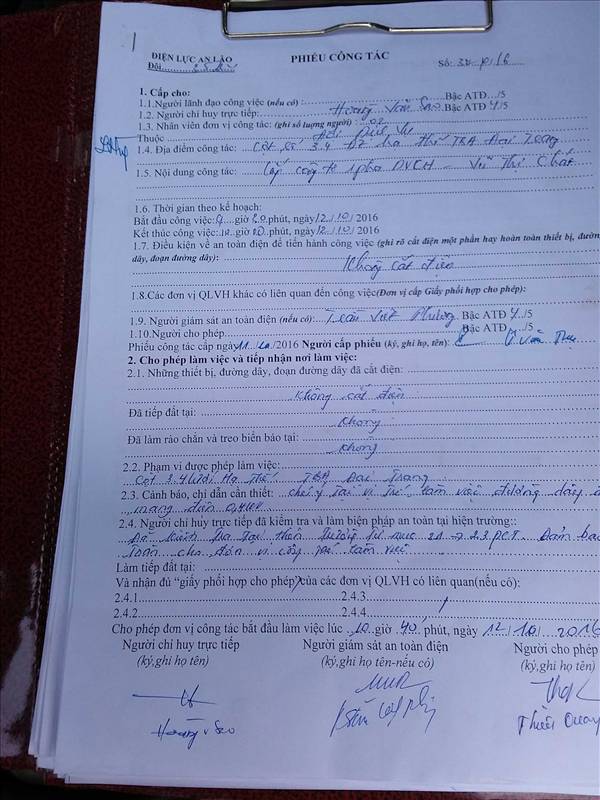 ĐIỆN LỰC AN LÃO
Đội
PHIẾU CÔNG TÁC
Số:
1. Cấp cho:
1.1.Người lãnh đạo công việc (nếu có) : Bậc ATĐ.../5
1.2. Người chỉ huy trực tiếp: Hoàng Văn Bậc ATĐ 4/5
1.3. Nhân viên đơn vị công tác: (ghi số lượng người) : 02
Thuộc
1.4. Địa điểm công tác: Cột số 3.4 TBA Đại Trang
1.5. Nội dung công tác: Lắp công tơ 1 pha DVCH – Vũ Thị
1.6. Thời gian theo kế hoạch:
Bắt đầu công việc: giờ phút, ngày 12/10/ 2016
Kết thúc công việc: giờ phút, ngày 12/10/ 2016
1.7. Điều kiện về an toàn điện để tiến hành công việc (ghi rõ cắt điện một phần hay hoàn toàn thiết bị, đường
dây, đoạn đường dây):
Không cắt điện
1.8.Các đơn vị QLVH khác có liên quan đến công việc(Đơn vị cấp Giấy phối hợp cho phép):
1.9. Người giám sát an toàn điện (nếu có): Trần Viết Phương Bậc ATĐ 4/5
1.10.Người cho phép Bậc ATĐ /5
Phiếu công tác cấp ngày 11/10/2016 Người cấp phiếu (ký, ghi họ, tên):
2. Cho phép làm việc và tiếp nhận nơi làm việc:
2.1. Những thiết bị, đường dây, đoạn đường dây đã cắt điện:
Không cắt điện
Đã tiếp đất tại:
Không
Đã làm rào chắn và treo biển báo tại:
Không
2.2. Phạm vi được phép làm việc:
Cột 3.4 Hạ Thế TBA Đại Trang
2.3. Cảnh báo, chỉ dẫn cần thiết: chú ý tại vị trí làm việc đường dây
mang điện 0,4KV
2.4. Người chỉ huy trực tiếp đã kiểm tra và làm biện pháp an toàn tại hiện trường::
Đã kiểm tra tại hiện trường từ mục 2.1 → 2.3 PCT. Đảm bảo
toàn cho đơn vị công tác làm việc
Làm tiếp đất tại:
Và nhận đủ “giấy phối hợp cho phép”của các đơn vị QLVH có liên quan(nếu có):
2.4.1 2.4.3
2.4.2 2.4.4
Cho phép đơn vị công tác bắt đầu làm việc lúc 10 giờ 40 phút, ngày 12/10/2016
Người chỉ huy trực tiếp Người giám sát an toàn điện Người cho phép
(ký,ghi họ tên) (ký,ghi họ tên-nếu có) (ký,ghi họ tên)
Hoàng